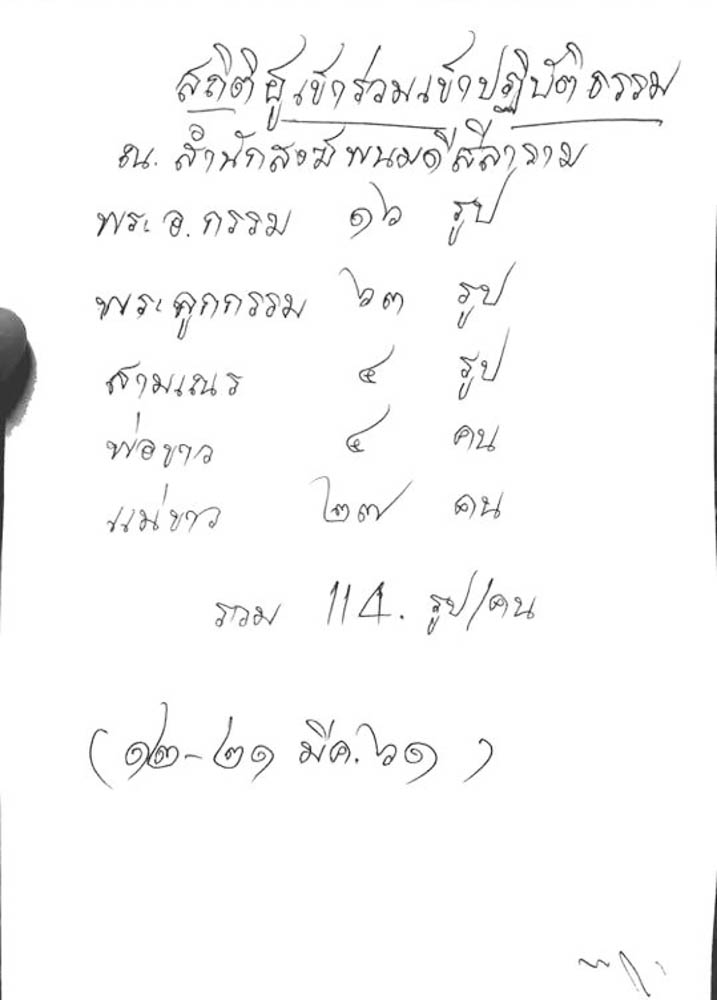 สถิติผู้เข้าร่วมเข้าปฏิบัติธรรม
ณ. สำนักสงฆ์พนมดีสีลาราม
พระ อ. กรรม ๑๖ รูป
พระลูกกรรม ๖๓ รูป
สามเณร ๔ รูป
พ่อขาว ๔ คน
แม่ขาว ๒๗ คน
รวม 114. รูป/คน
(๑๒-๒๑ มีค. ๖๑)